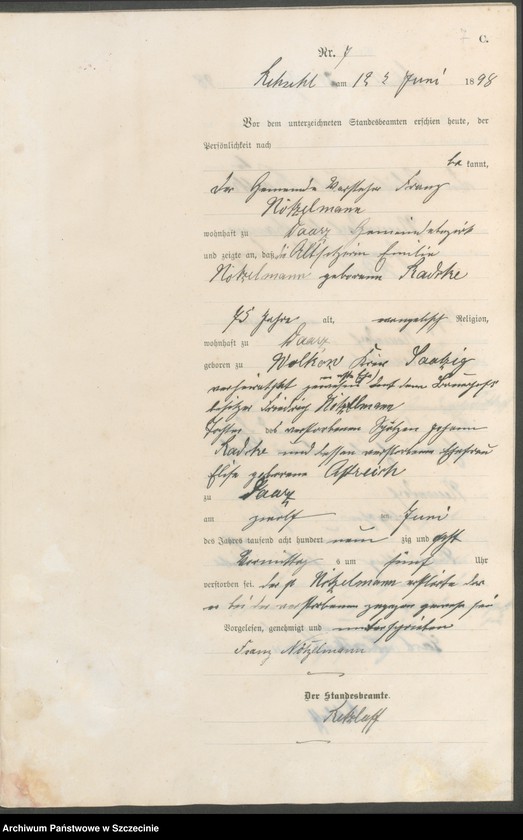 7 C.
Nr. 7
am 12 Juni 1898
Vor dem unterzeichneten Standesbeamten erschien heute, der
Persönlichkeit nach
be kannt,
der Gemeinde Vorsteher Franz
Nötzelmann
wohnhaft zu Daarz Gemeindebezirk
und zeigte an, daß die Altsitzerin Emilie
Nötzelmann geborene Radtke
75 Jahre alt, evangelisch Religion,
wohnhaft zu Daarz
geboren zu Kreis Saatzig
verheirathet gewesen mit dem
besitzer Friedrich Nötzelmann
Tochter des verstorbenen Johann
Radtke und dessen verstorbene Ehefrau
geborene
zu Daarz
am zwölf ten Juni
des Jahres tausend acht hundert neun zig und acht
Vormittag s um fünf Uhr
verstorben sei. Der p Nötzelmann erklärte das
er bei der verstorbenen zugegen gewesen sei
Vorgelesen, genehmigt und unterschrieben
Franz Nötzelmann
Der Standesbeamte.
Retzlaff
Archiwum Państwowe w Szczecinie